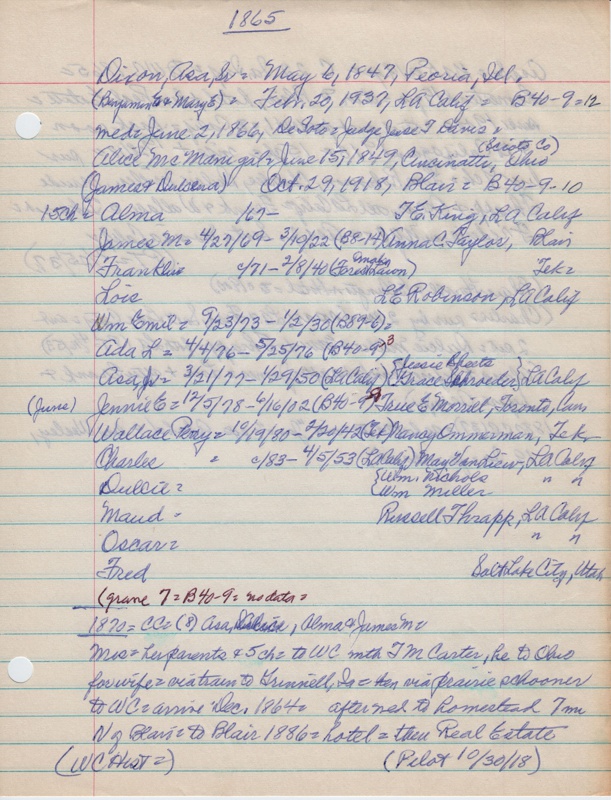 1865
Dixon, Asa, Sr = May 6, 1847, Peoria, Ill.
(Benjamin E & Mary E) = Feb. 20, 1937, LA Calif = B40-9=12
med = June 2, 1866, DeSoto = Judge Jesse T Davis =
(Scioto Co)
Alice McManigal = June 15, 1849, Cincinatti, Ohio
(James & Dulcena) Oct. 29, 1918, Blair = B40-9-10
15ch = Alma /67- T E King, LA Calif
James M = 4/27/69 - 3/19/22 (B8-14) Anna C. Taylor, Blair
Franklin c/71 - 2/8/40 (Omaha Forest Lawn) Tek =
Lois L E Robinson, LA Calif
Wm Emil = 9/23/73 - 1/2/30 (B89-6) =
Ada L = 4/4/76 - 5/25/76 (B40-9) 3
Asa Jr = 3/21/77 - 1/29/50 (LA Calif) {Jessie / Grace Schroeder} LA Calif
(June) Jennie E = 12/5/78 - 6/16/02 (B40-9) True E Morrill, Toronto, Can
Wallace Perry = 10/19/80 - 2/20/42 (Tek) Nancy Ommerman, Tek
Charlie = c/83 - 4/5/53 (LA Calif) May VanLiew, LA Calif
Dulcie = {Wm. Nichols " "
{Wm Miller
Maud = Russell Thrapp, LA Calif
Oscar = " "
Fred Salt Lake City, Utah
(grave 7 = B40-9 = no data =
1870 = CC = (8) Asa, Alice, Alma & James M =
Mrs = her parents & 5 ch = to WC with T M Carter, he to Ohio
for wife = via train to Grinnell, Ia = then via prairie schooner
to WC = arrive Dec. 1864 = after wed to homestead 7 mi
N of Blair = to Blair 1886 = hotel = then Real Estate
(WC Hist =) (Pilot 10/30/18)